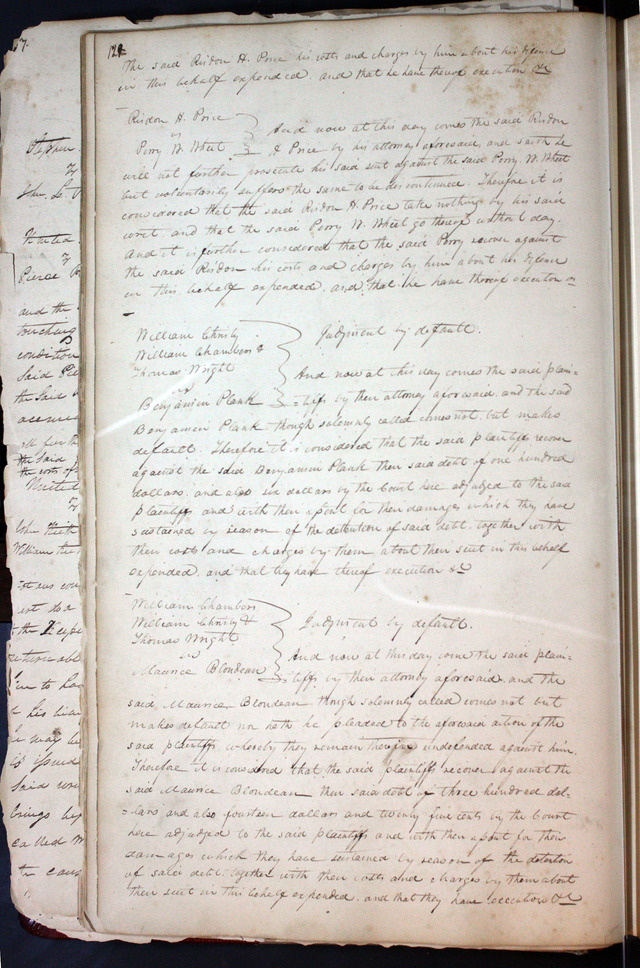 124
The said Risdon H. Price his costs and charges by him about his defence
in this behalf expended. and that he have thereof execution &c
Risdon H. Price
vs
Perry W. Wheat
And now at this day comes the said Risdon
H Price by his attorney aforesaid, and saith he
will not further prosecute his said suit against the said Perry W. Wheat
but voluntarily suffers the same to be discontinued. Therefore it is
considered that the said Risdon H. Price take nothing by his said
writ. and that the said Perry W. Wheat go thereof without day.
And it is further considered that the said Perry recover against
the said Risdon his costs and charges by him about his defence
in this behalf expended. and that he have thereof execution &c
William Christy
William Chambers &
Thomas Wright
vs
Benjamin Plank
Judgment by default.
And now at this day comes the said plain-
-tiffs by their attorney aforesaid, and the said
Benjamin Plank though solemnly called comes not. but makes
default. Therefore it is considered that the said plaintiffs recover
against the said Benjamin Plank their said debt of one hundred
dollars, and also six dollars by the Court here adjudged to the said
plaintiffs and with their assent for their damages which they have
sustained by reason of the detention of said debt. together with
their costs and charges by them about their suit in this behalf
expended, and that they have thereof execution &c
William Chambers
William Christy &
Thomas Wright
vs
Maurice Blondeau
Judgment by default.
And now at this day come the said plain-
-tiffs by their attorney aforesaid, and the
said Maurice Blondeau though solemnly called comes not but
makes default nor hath he pleaded to the aforesaid action of the
said plaintiffs whereby they remain therein undefended against him.
Therefore it is considered that the said plaintiffs recover against the
said Maurice Blondeau their said debt of three hundred dol-
-lars and also fourteen dollars and twenty five cents by the Court
here adjudged to the said plaintiffs and with their assent for their
damages which they have sustained by reason of the detention
of said debt. together with their costs and charges by them about
their suit in this behalf expended. and that they have execution &c
57.
Stephen
John
United
Pierce
and the
touching
condition
Said
the Said
all
the Said
the costs of
United
John
William